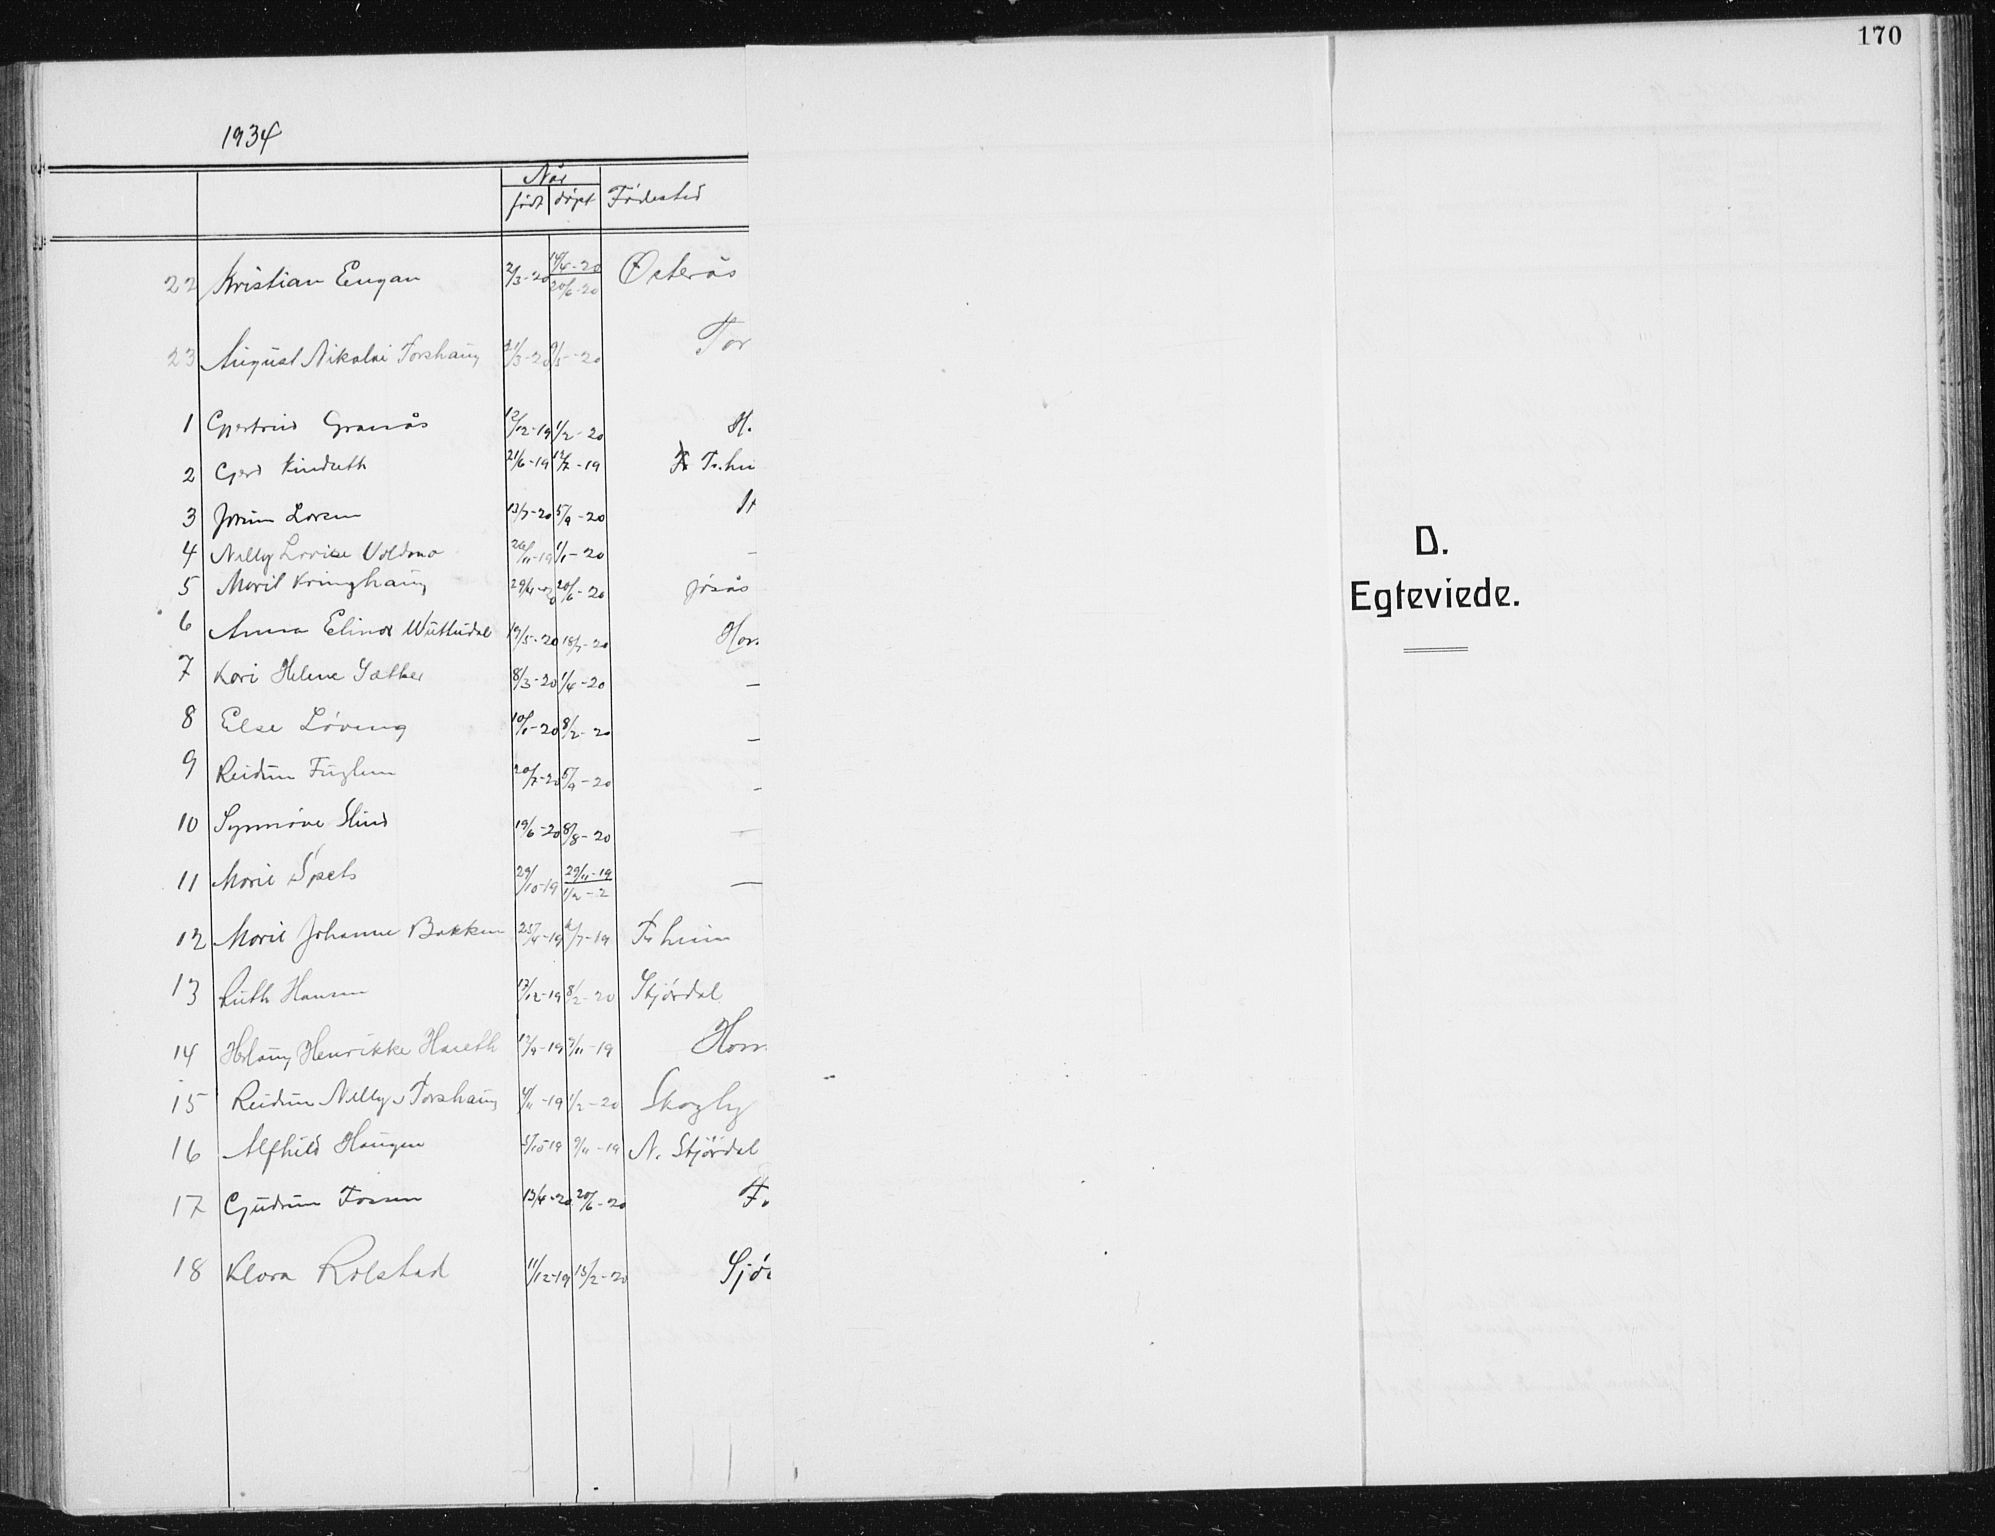 170
1934
Når
født døpt Fødested
22 Kristian Eugan 2/3-20 14/4-20 Østerås
20/6-20
23 August Nikolai Forshaug 21/3-20 9/5-20 For
1 Gjertrud Granås 12/12-19 1/2-20 H.
2 Gjerd Kindseth 21/6-19 12/7-19 Tr.hei
3 Jorun Larsen 13/7-20 5/9-20 H
4 Nelly Lovise Voldmo 26/11-19 1/1-20 —
5 Marit Kringhaug 29/4-20 20/6-20 Jøsås
6 Anna Elinor Wuttudal 19/5-20 18/7-20 Hom
7 Kari Helene Sæther 8/3-20 1/4-20 —
8 Else Løving 10/1-20 8/2-20 —
9 Reidun Fuglem 20/7-20 5/9-20 —
10 Synnøve Slind 19/6-20 8/8-20 —
11 Marie Opets 29/10-19 29/11-19 —
1/2-2
12 Marie Johanne Bakken 25/4-19 6/7-19 Tr heim
13 Ruth Hansen 17/12-19 8/2-20 Stjørdal
14 Herlaug Henrikke Haseth 17/9-19 9/11-19 Hom
15 Reidun Nelly Forshaug 4/11-19 1/2-20 Skogly
16 Alfhild Haugen 5/10-19 9/11-19 N. Stjørdal
17 Gudrun Fossen 13/4-20 20/6-20 F.
18 Klara Rolstad 11/12-19 15/2-20 Sjø
D.
Egteviede.